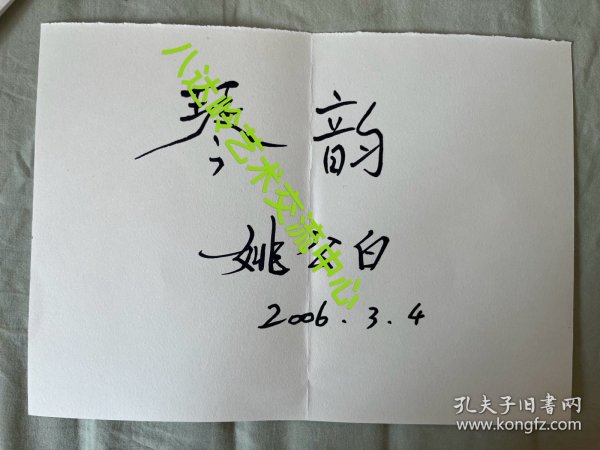 琴韵
姚公白
2006.3.4
八达岭艺术交流中心
孔夫子旧书网
www.kongfz.com